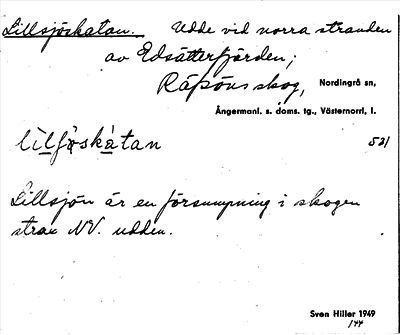 Lillsjöskatan. Udde vid norra stranden
av Edsätterfjärden;
Räpöns skog, Nordingrå sn,
Ångermanl. s. doms. tg., Västernorrl. l.
lìlʃöskàtan 521
Lillsjön är en försumpning i skogen
strax NV. udden.
Sven Hiller 1949
/44